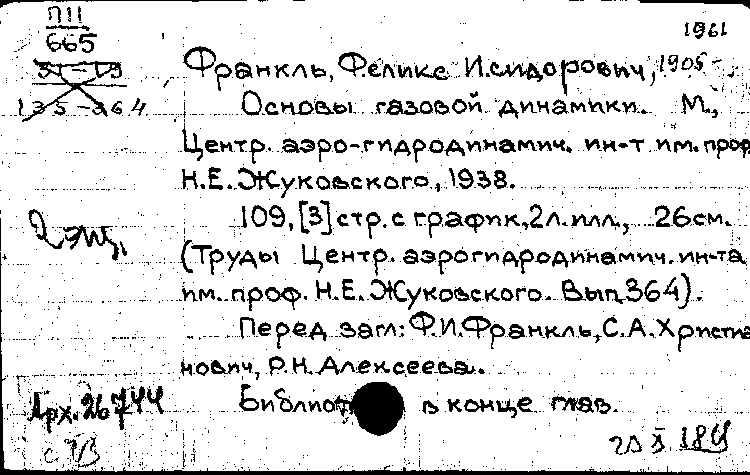 П11
665
1961
Франкль, Феликс Исидорович, 1905-
135-364
Основы газовой динамики. М.,
Центр. аэро-гидродинамич. ин-т им. проф
Н.Е.Жуковского, 1938.
109, [3] стр. с график, 2 л. илл., 26 см.
2 экз.
(Труды Центр. аэрогидродинамич. ин-та
им. проф. Н.Е.Жуковского. Вып. 364).
Перед загл: Ф.И.Франкль, С.А.Христиа
нович, Р.Н.Алексеева.
Арх. 26744
Библиог в конце глав.